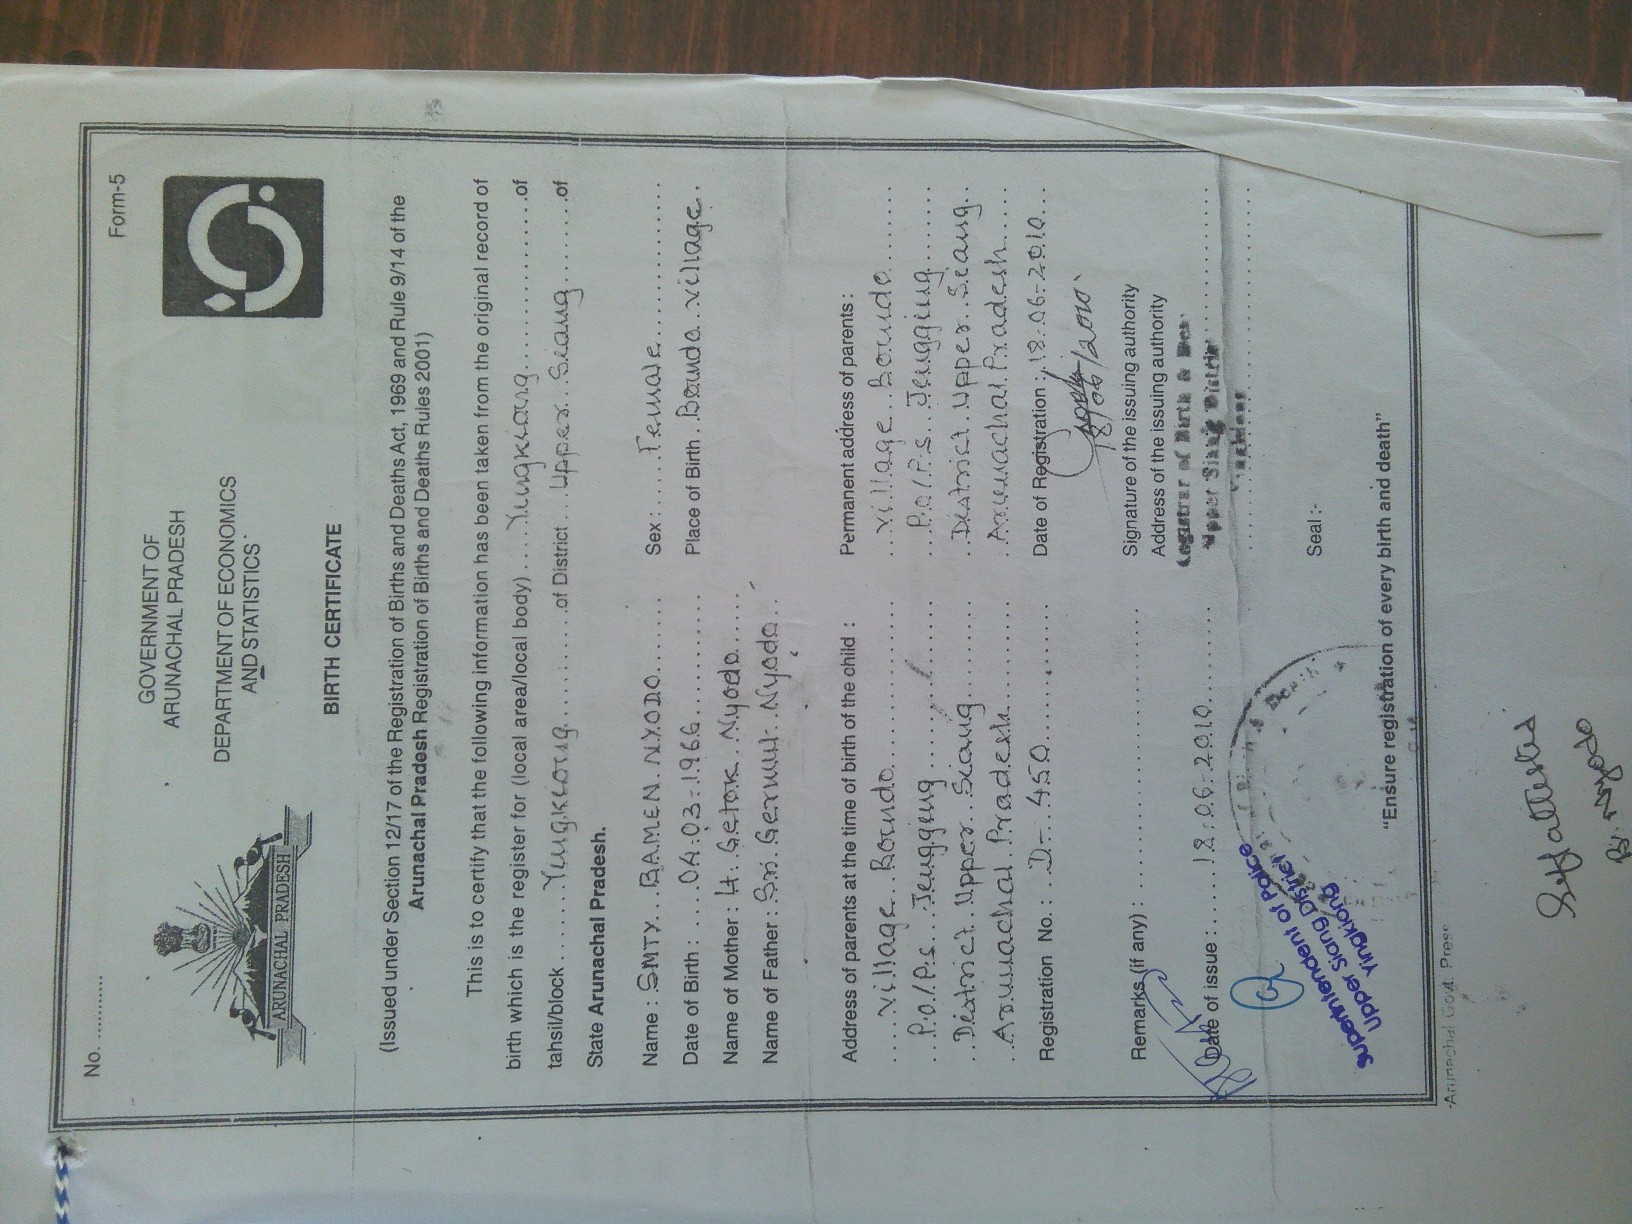 No. ..............
Form-5
GOVERNMENT OF
ARUNACHAL PRADESH
DEPARTMENT OF ECONOMICS
AND STATISTICS
ARUNACHAL PRADESH
BIRTH CERTIFICATE
(Issued under Section 12/17 of the Registration of Births and Deaths Act, 1969 and Rule 9/14 of the
Arunachal Pradesh Registration of Births and Deaths Rules 2001)
This is to certify that the following information has been taken from the original record of
birth which is the register for (local area/local body) .... Yingkiong ................ of
tahsil/block ....... Yingkiong ............ of District ... Upper Siang ........... of
State Arunachal Pradesh.
Name : SMTY. BAMEN NYODO Sex : Female
Date of Birth : 04.03.1966 Place of Birth Bomdo village.
Name of Mother : Lt. Getok Nyodo
Name of Father : Sri. Nyodo
Address of parents at the time of birth of the child : Permanent address of parents :
Village Bomdo Village Bomdo
P.O/P.S. Jengging P.O/P.S. Jengging
District Upper Siang District Upper Siang
Arunachal Pradesh Arunachal Pradesh
Registration No. : D-450 Date of Registration : 18.06.2010
18/06/2010
Remarks (if any) : Signature of the issuing authority
Address of the issuing authority
Registrar of Birth &
Upper Siang District
Date of issue : 18.06.2010
Seal :-
Superintendent of Police
Upper Siang District
Yingkiong
"Ensure registration of every birth and death"
-Arunachal Govt. Press
Selfattested
B. Nyodo